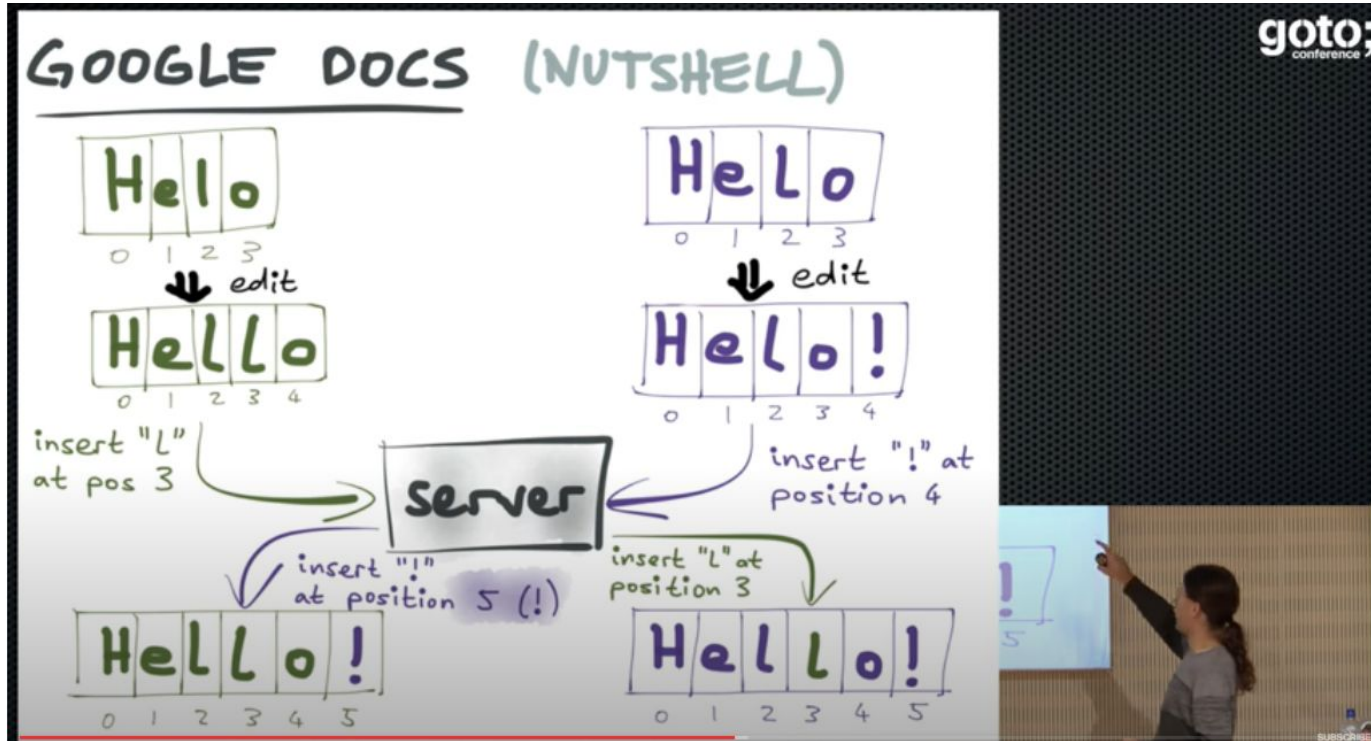 GOOGLE DOCS (NUTSHELL)
goto;
conference
Helo
0 1 2 3
edit
Hello
0 1 2 3 4
insert "L"
at pos 3
Helo
0 1 2 3
edit
Helo!
0 1 2 3 4
insert "!" at
position 4
server
insert "!"
at position 5 (!)
insert "L" at
position 3
HeLLo!
0 1 2 3 4 5
HeLLo!
0 1 2 3 4 5
!
5
SUBSCRIBE